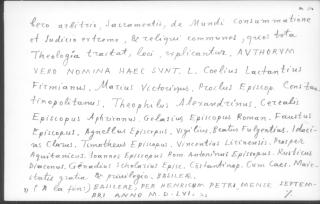 bero arbitrio, Sacramentis, de Mundi Consummatione
et Iudicio extremo, & reliqui communes, quos tota
Theologia tractat, loci, replicantur. AVTHORVM
VERO NOMINA HAEC SVNT. L. Coelius Lactantius
Firmianus. Marius Victorinus. Proclus Episcop. Constan
tinopolitanus. Theophilus Alexandrinus. Cerealis
Episcopus Aphricanus. Gelasius Episcopus Roman. Faustus
Episcopus. Agnellus Episcopus. Vigilius. Beatus Fulgentius. Idaci-
us Clarus. Timotheus Episcopus. Vincentius Lirinensis. Prosper
Aquitanicus. Ioannes Episcopus Rom. Antoninus Episcopus. Rusticus
Diaconus. Gēnadius Scholarius Episc. Cōstantinop. Cum Caes. Maie-
statis gratia & privilegio. BASILEAE.
(A la fin:) BASILEAE, PER HENRICUM PETRI MENSE SEPTEM-
BRI ANNO M.D.LVI.